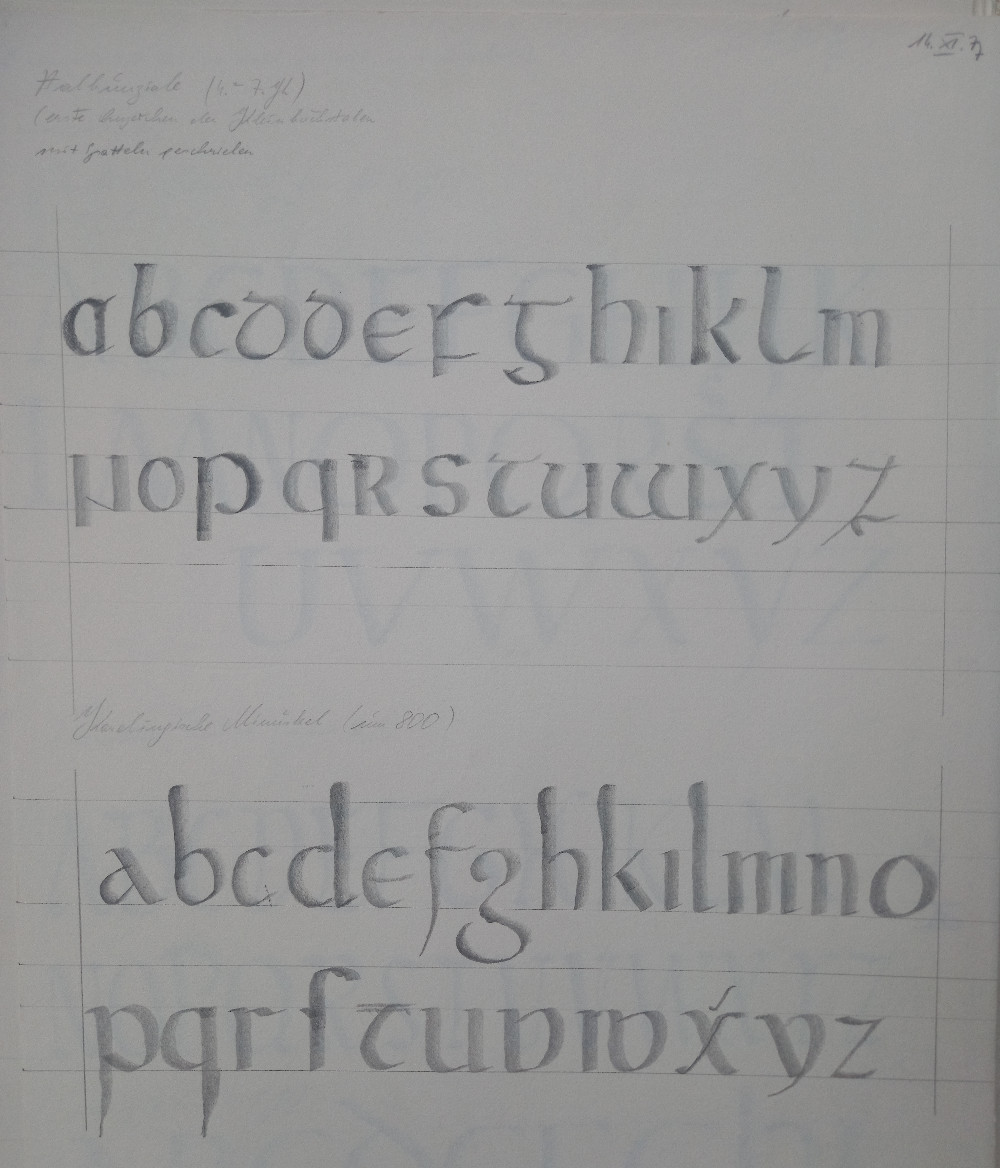 14. XI. 77
Halbunziale (4. - 7. Jh)
(erste Anzeichen der Kleinbuchstaben
mit geschrieben
abcddefghıklm
nopqrstuwxyz
Karolingische Minuskel (um 800)
abcdefghkılmno
pqrſtuvwxyz